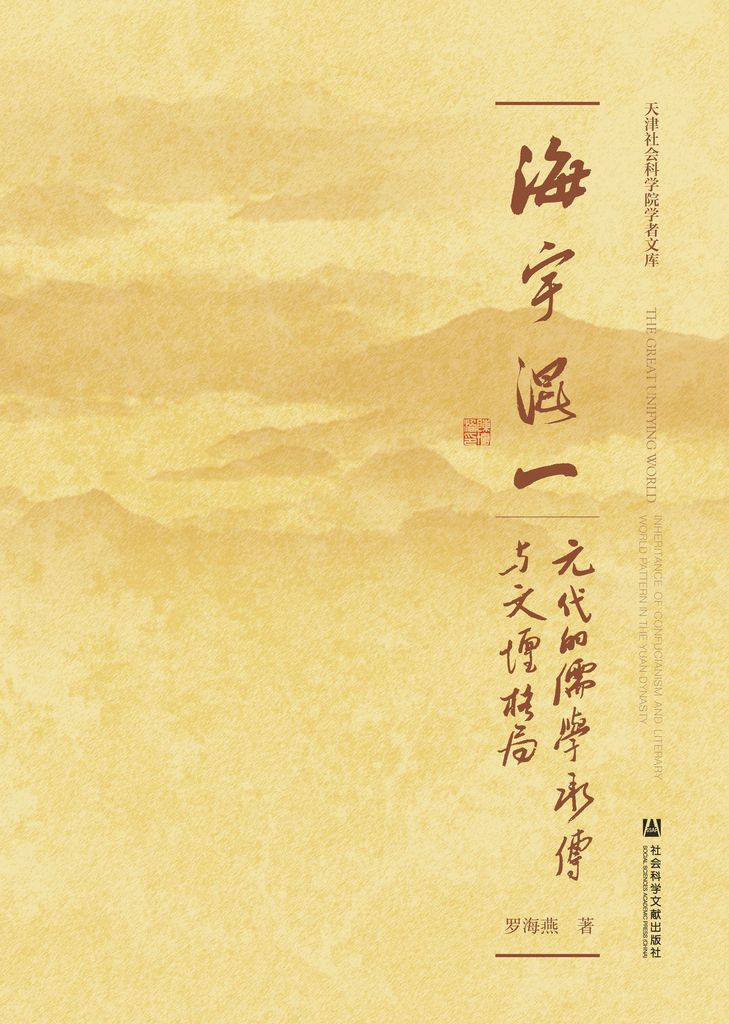 天津社会科学院学者文库
海宇混一
THE GREAT UNIFYING WORLD
元代的儒學承傳
与文壇格局
INHERITANCE OF CONFUCIANISM AND LITERARY
WORLD PATTERN IN THE YUAN DYNASTY
罗海燕 著
SSAP
社会科学文献出版社
SOCIAL SCIENCES ACADEMIC PRESS (CHINA)